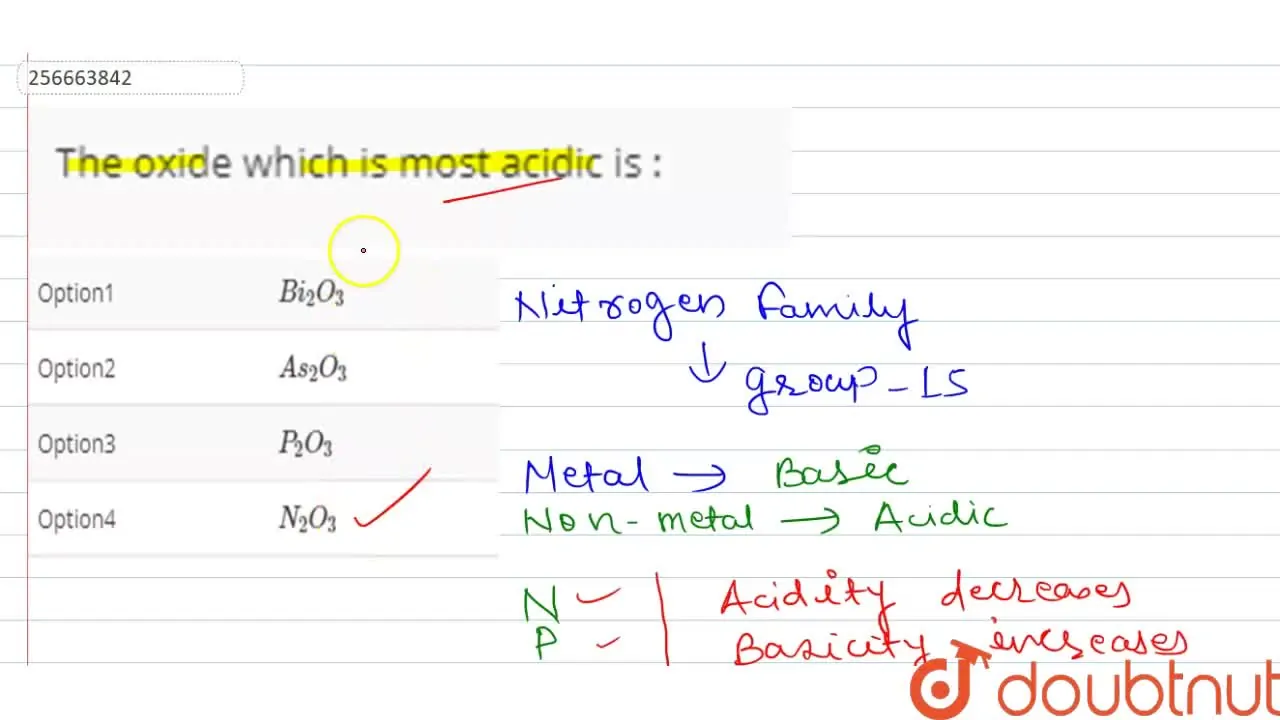 256663842
The oxide which is most acidic is :
Option1 Bi₂O₃
Option2 As₂O₃
Option3 P₂O₃
Option4 N₂O₃
Nitrogen Family
group - 15
Metal → Basic
Non-metal → Acidic
N Acidity decreases
P Basicity increases
doubtnut